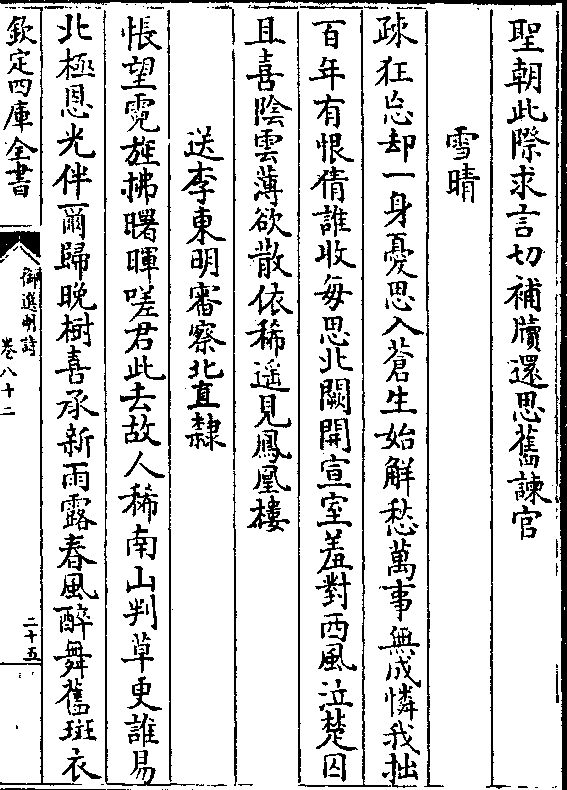 聖朝此際求言切補牘還思舊諫官
雪晴
疎狂忘却一身憂思入蒼生始解愁萬事無成憐我拙
百年有恨倩誰收每思北闕開宣室羞對西風泣楚囚
且喜陰雲薄欲散依稀遥見鳳凰樓
送李東明審察北直隸
悵望霓旌拂曙暉嗟君此去故人稀南山判草更誰易
北極恩光伴爾歸晚樹喜承新雨露春風醉舞舊斑衣
欽定四庫全書
御選明詩
卷八十二
二十五